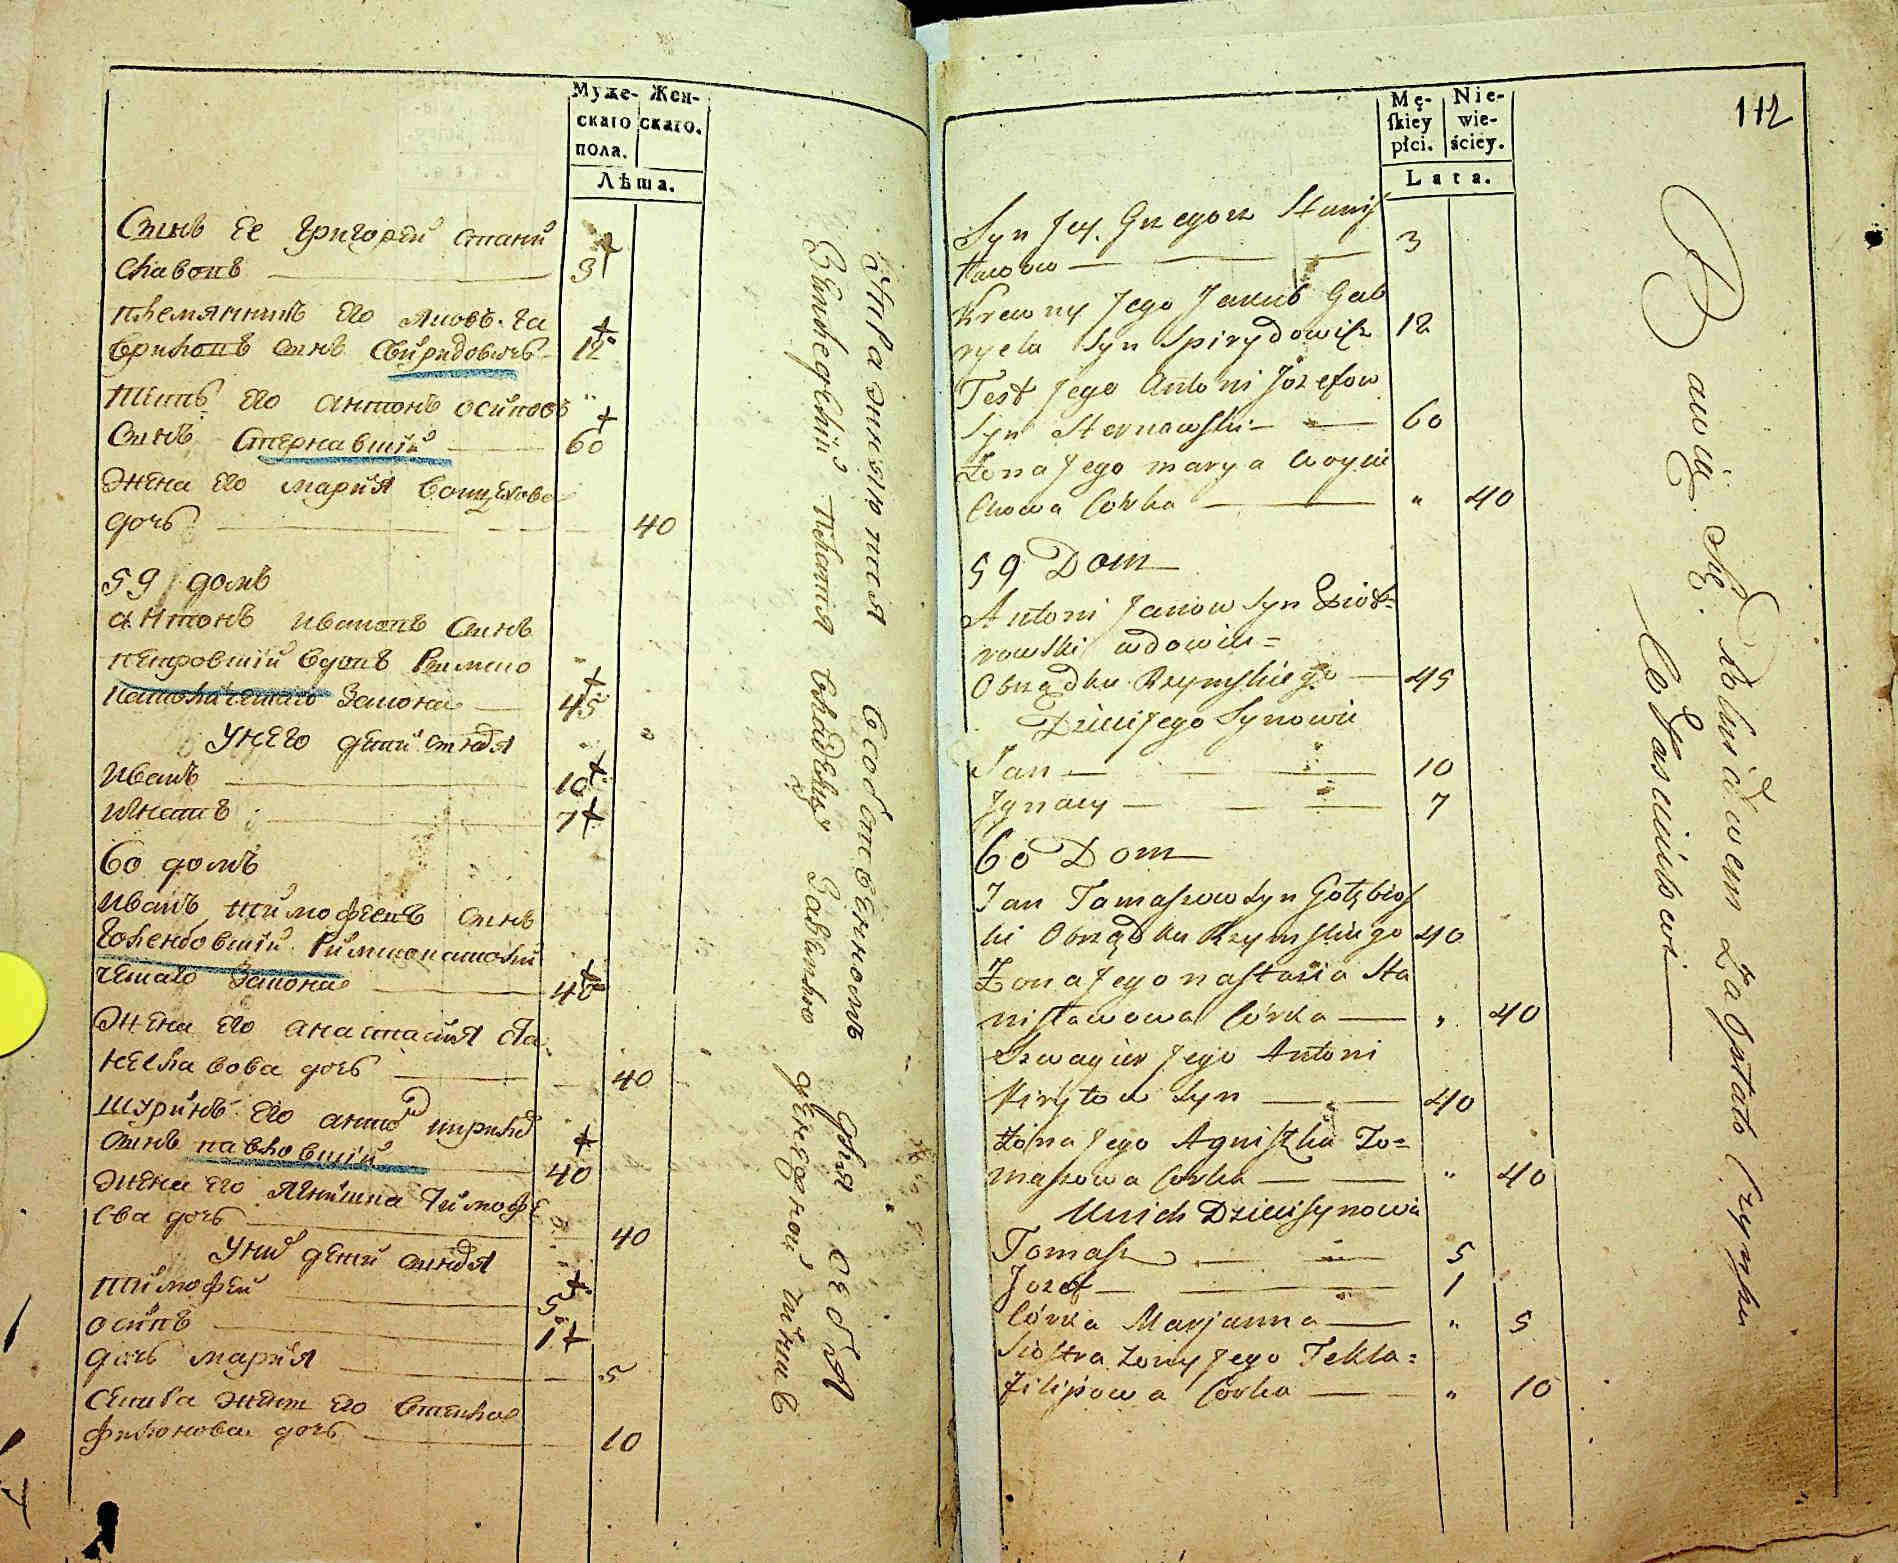 Муже- Жен-
скаго скаго.
пола.
Лѣта.
Сынъ Ее Григорей Стани
славовъ 3
племянникъ Его Яковъ Га
вриловъ сынъ Свиридовичъ 12
Тесть Его Антонъ Осиповъ
Сынъ Стернавский 60
Жена Его Мария Войцехова
дочь 40
59 домъ
Антонъ Ивановъ Сынъ
петровский вдовъ Римско
католическаго Закона 45
У него дети сыновья
Иванъ 10
Игнатъ 7
60 домъ
Иванъ Тимофеевъ сынъ
Голембовский Римскокатоли
ческаго Закона 40
Жена Его Анастасия Ста
неславова дочь 40
Шуринъ Его Антон Кирилов
сынъ павловский 40
Жена Его Агнишка Тимофе
ева дочь 40
У них дети сыновья
Тимофей 5
Осипъ 1
дочь Мария 5
Сестра жены Его Текля
Филипова дочь 10
собственномъ
для себя
112
Mę- Nie-
skiey wie-
płci. ściey.
Lata.
Syn Jey Grzegorz Stanis
ławow 3
Krewny Jego Jakub Gab
ryela Syn Spirydowicz 12
Test Jego Antoni Jozefow
Syn Sternawski 60
Żona Jego Marya Woycie
chowa Córka " 40
59 Dom
Antoni Janow Syn Piot=
rowski wdowiec=
Obrządku Rzymskiego 45
Dzieci Jego Synowie
Jan 10
Jgnacy 7
60 Dom
Jan Tomaszow Syn Gołębiows
ki Obrządku Rzymskiego 40
Żona Jego Nastazia Sta
nisławowa Córka " 40
Szwagier Jego Antoni
Kiryłow Syn 40
Żona Jego Agniszka To=
maszowa Corka " 40
U nich Dzieci Synowie
Tomasz 5
Jozef 1
Córka Maryanna " 5
Siostra Żony Jego Tekla=
Filipowa Córka " 10
Bawią Się
Zapłatą Czynszu